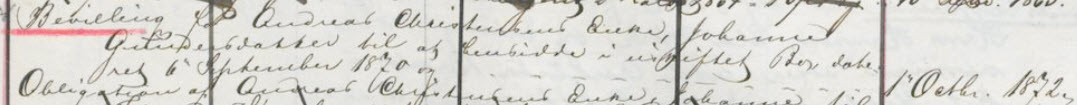 Bevilling for Andreas Christensens Enke, Johanne
Gundersdatter til at hensidde i uskiftet Bo, date-
ret 6te September 1870 og
Obligation af Andreas Christensens Enke, Johanne til 1ste Octbr. 1872.